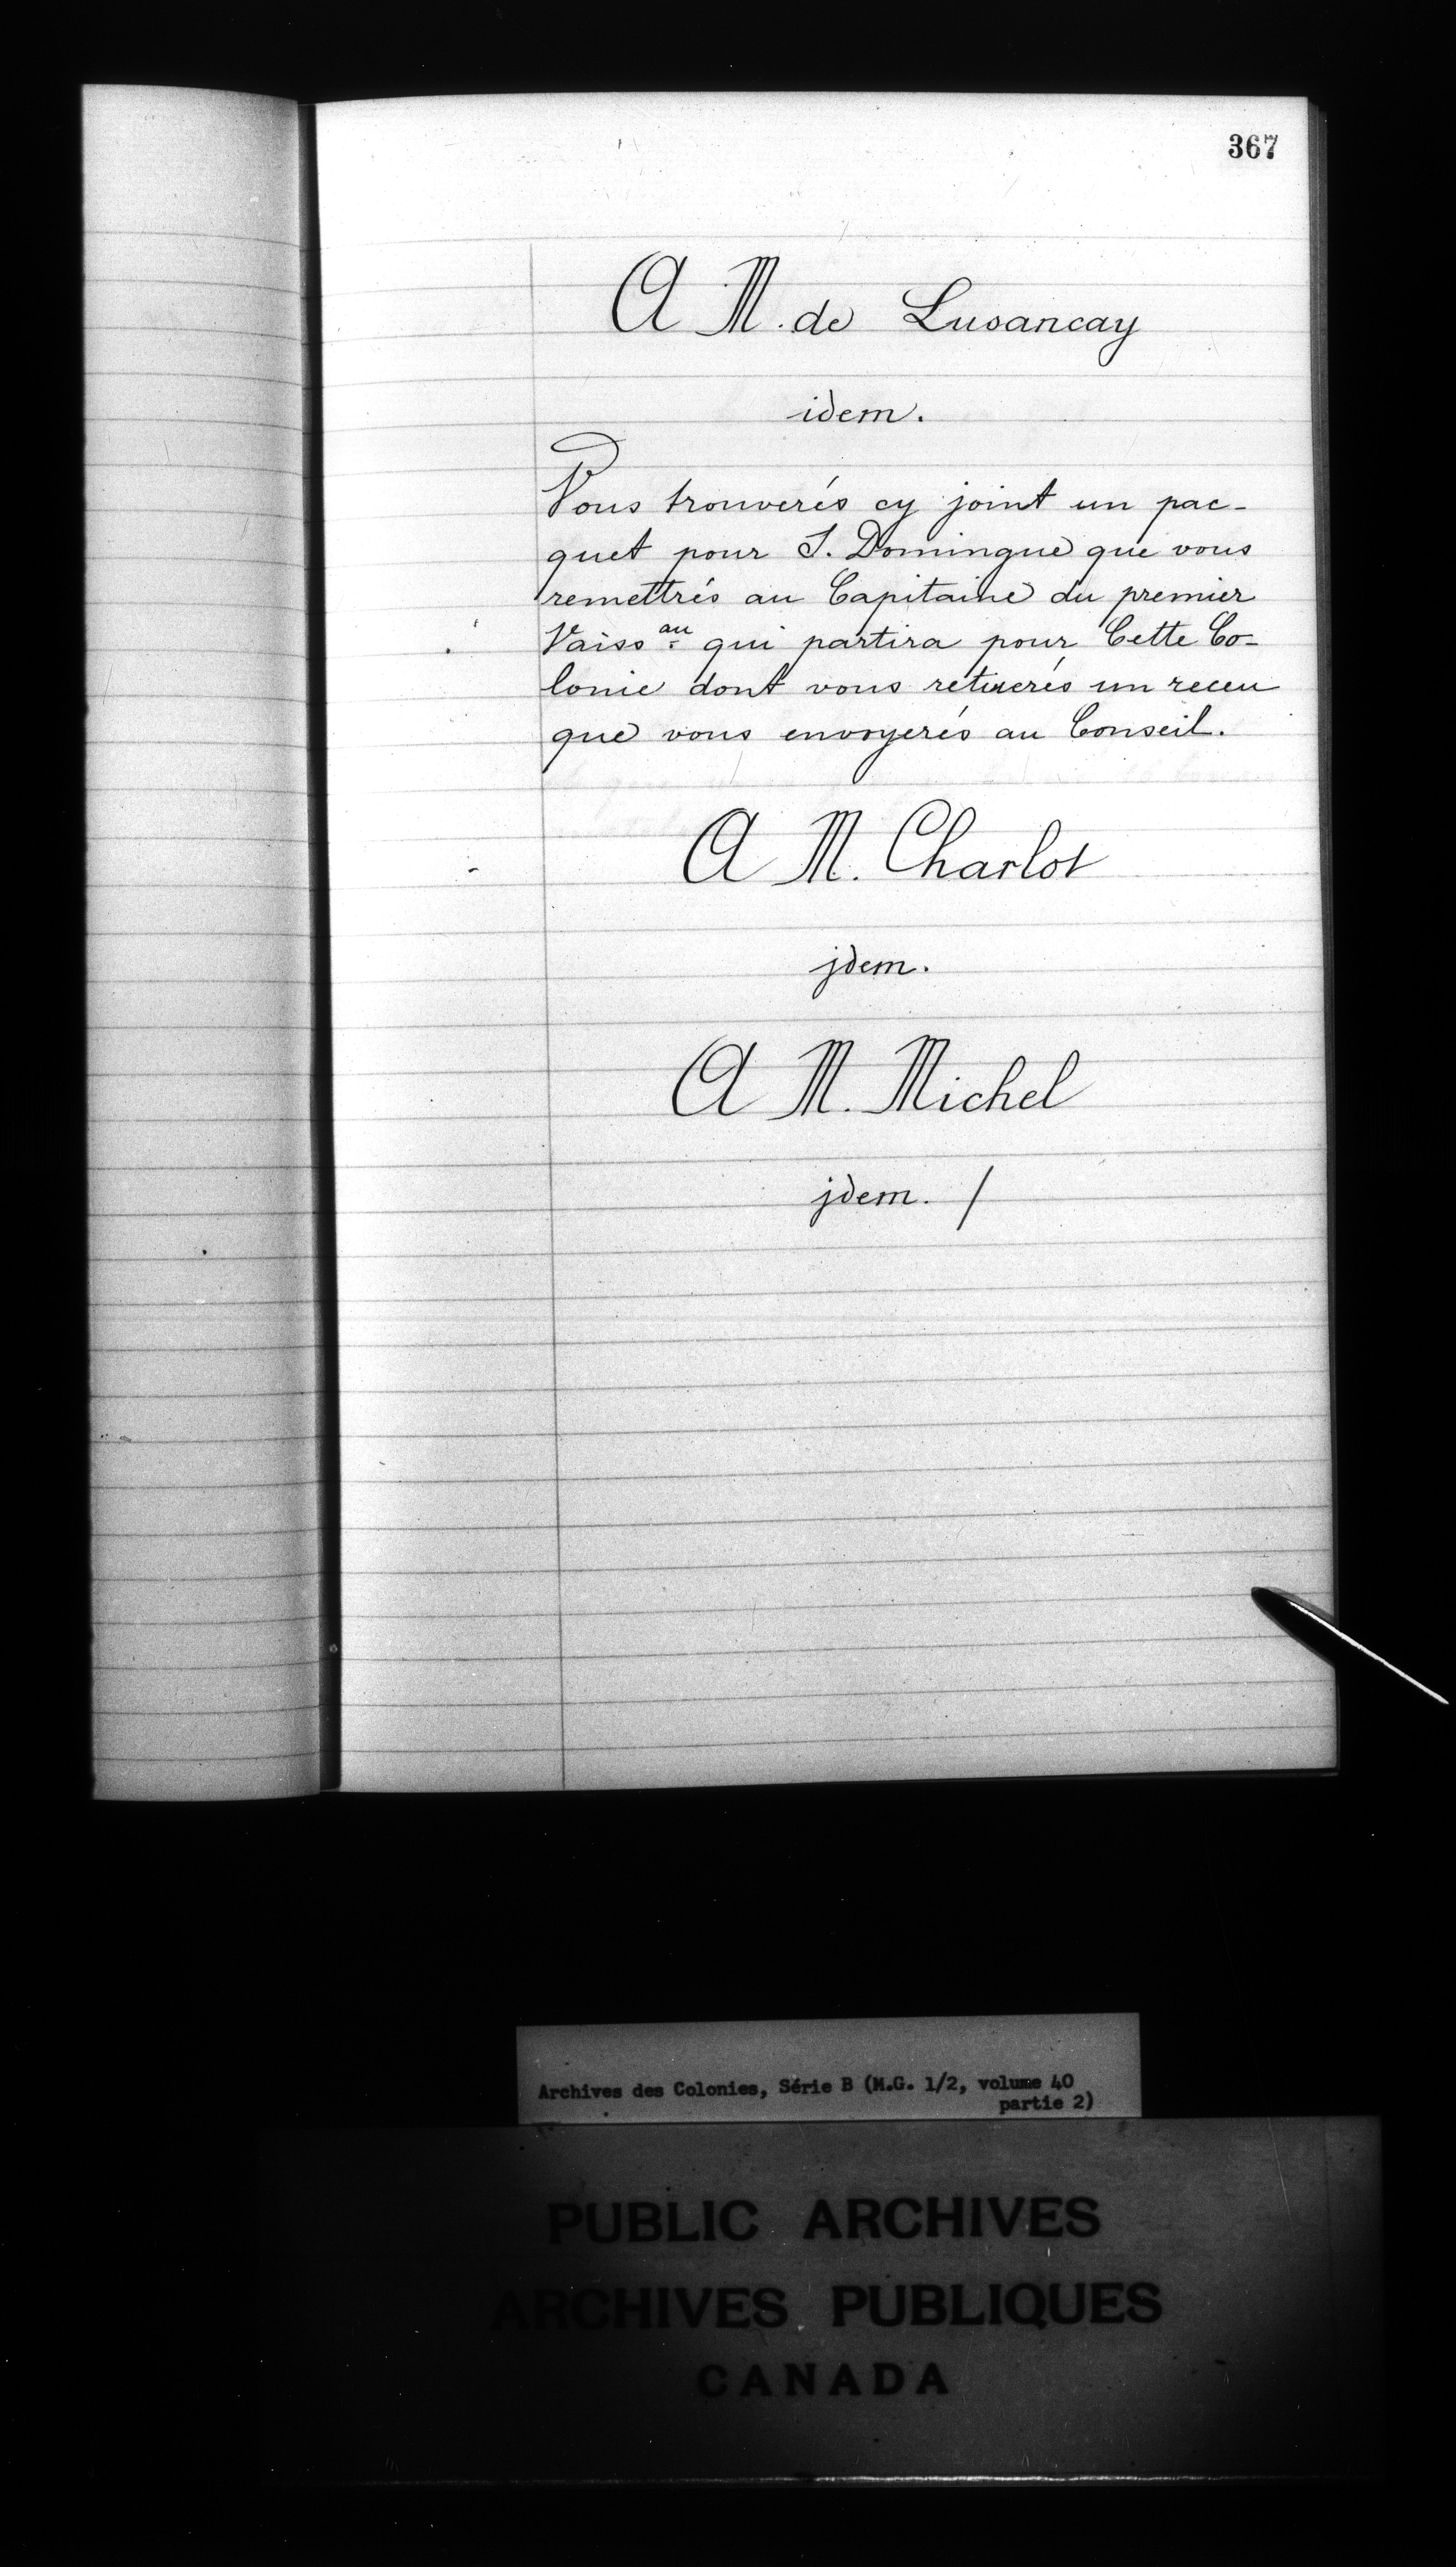 367
A M. de Lusancay
idem.
Vous trouverés cy joint un pac-
quet pour S. Domingue que vous
remettrés au Capitaine du premier
Vaiss.au qui partira pour Cette Co-
lonie dont vous retirerés un receu
que vous envoyerés au Conseil.
A M. Charlot
jdem.
A M. Michel
jdem. /
Archives des Colonies, Série B (M.G. 1/2, volume 40
partie 2)
PUBLIC ARCHIVES
ARCHIVES PUBLIQUES
CANADA